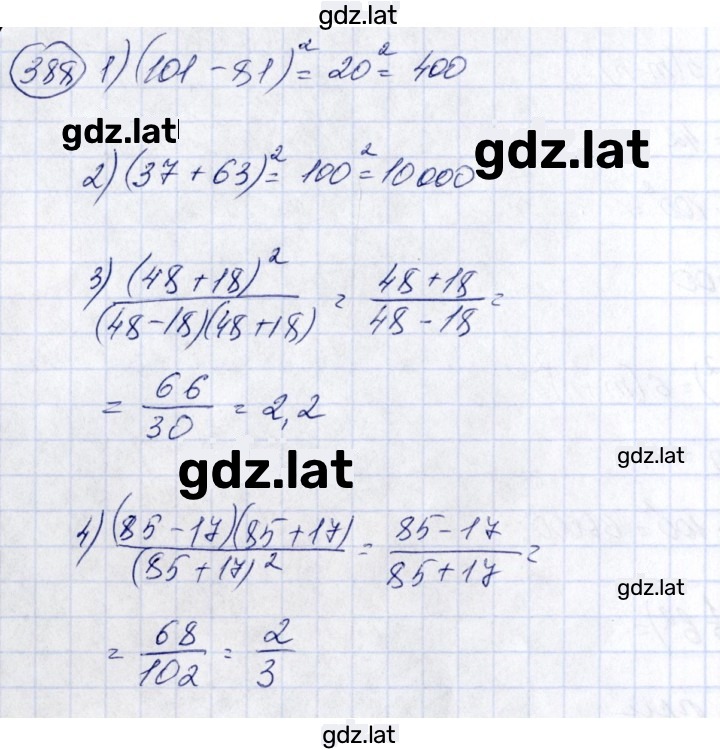 gdz.lat
388 1) (101 - 81)² = 20² = 400
gdz.lat
gdz.lat
2) (37 + 63)² = 100² = 10000
3) (48 + 18)² / (48 - 18)(48 + 18) = 48 + 18 / 48 - 18 =
= 66 / 30 = 2,2
gdz.lat
gdz.lat
4) (85 - 17)(85 + 17) / (85 + 17)² = 85 - 17 / 85 + 17 =
gdz.lat
= 68 / 102 = 2 / 3
gdz.lat